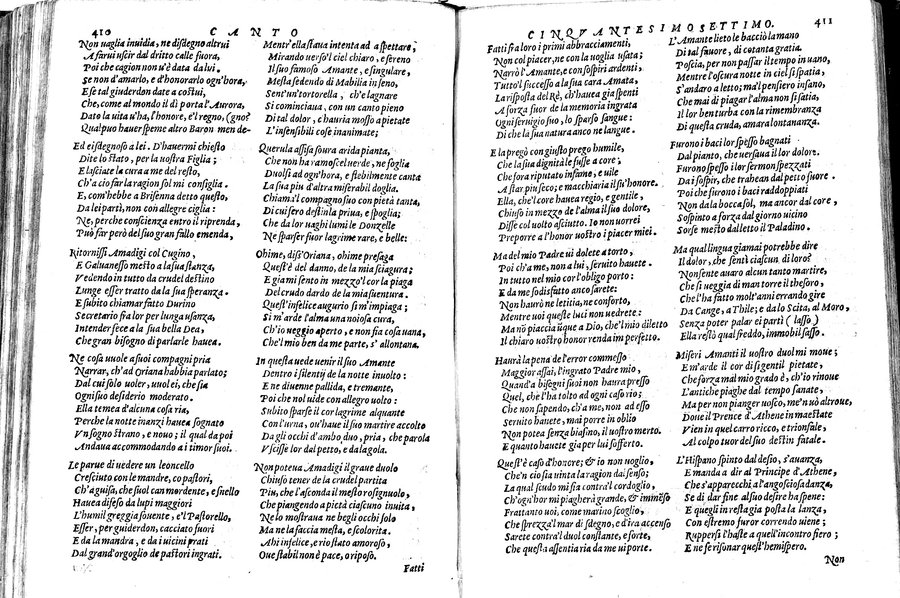 410 CANTO
Non uaglia inuidia, ne disdegno altrui
A farui uscir dal dritto calle fuora,
Poi che cagion non u'è data da lui.
Se non d'amarlo, e d'honorarlo ogn'hora,
E se tal guiderdon date a costui,
Che, come al mondo il dì porta l'Aurora,
Dato la uita u'ha, l'honore, e'l regno, (gno?
Qualpuo hauer speme altro Baron men de-
Ed ei sdegnoso a lei. D'hauermi chiesto
Dite lo stato, per la uostra Figlia;
E lasciate la cura a me del resto,
Ch'a ciò far la ragion sol mi consiglia.
E, com'hebbe a Brisenna detto questo,
Da lei partì, non con allegre ciglia:
Ne, perche conscienza entro il riprenda,
Può far però del suo gran fallo emenda,
Ritornissi Amadigi col Cugino,
E Galuanesso mesto a la sua stanza,
Vedendo in tutto da crudel destino
Lunge esser tratto da la sua speranza.
E subito chiamar fatto Durino
Secretario fia lor per lunga usanza,
Intender fece a la sua bella Dea,
Che gran bisogno di parlarle hauea.
Ne cosa uuole a suoi compagni pria
Narrar, ch'ad Oriana habbia parlato;
Dal cui solo uoler, uuol ei, che sia
Ogni suo desiderio moderato.
Ella temea d'alcuna cosa ria,
Perche la notte inanzi hauea sognato
Vn sogno strano, e nouo; il qual da poi
Andaua accommodando a i timor suoi.
Le parue di uedere un leoncello
Cresciuto con le mandre, co pastori,
Ch'a guisa, che suol can mordente, e suello
Hauea difeso da lupi maggiori
L'humil greggia souente, e'l Pastorello,
Esser, per guiderdon, cacciato fuori
E da la mandra, e da i uicini prati
Dal grand'orgoglio de pastori ingrati.
Mentr'ella staua intenta ad aspettare,
Mirando uerso'l ciel chiaro, e sereno
Il suo famoso Amante, e singulare,
Mesta sedendo di Mabilia in seno,
Sent'un'tortorella, ch'e lagnare
Si cominciaua, con un canto pieno
Di tal dolor, c'hauria mosso a pietate
L'insensibili cose inanimate;
Querula assisa soura arida pianta,
Che non ha ramoscel uerde, ne foglia
Duolsi ad ogn'hora, e flebilmente canta
La sua piu d'altra miserabil doglia.
Chiama'l compagno suo con pietà tanta,
Di cui fero destin la priua, e spoglia;
Che da lor uaghi lumi le Donzelle
Ne sparser fuor lagrime rare, e belle:
Ohime, diss'Oriana, ohime presaga
Quest'è del danno, de la mia sciagura;
E gia mi sento in mezzo'l cor la piaga
Del crudo dardo de la mia suentura.
Quest'infelice augurio sì m'impiaga;
Sì m'arde l'alma una noiosa cura,
Ch'io ueggio aperto, e non fia cosa uana,
Che'l mio ben da me parte, s'allontana.
In questa uede uenir il suo Amante
Dentro i silentij de la notte inuolto:
E ne diuenne pallida, e tremante,
Poi che nol uide con allegro uolto:
Subito sparse il cor lagrime alquante
Con l'urna, ou'haue il suo martire accolto
Da gli occhi d'ambo duo, pria, che parola
Vscisse lor dal petto, e da la gola.
Non poteua Amadigi il graue duolo
Chiuso tener de la crudel partita
Piu, che l'asconda il mesto rosignuolo,
Che piangendo a pietà ciascuno inuita,
Ne lo mostraua ne begli occhi solo
Ma ne la faccia mesta, e scolorita.
Ahi infelice, e rio stato amoroso,
Oue stabil non è pace, o riposo.
Fatti
CINQVANTESIMOSETTIMO. 411
Fatti fra loro i primi abbracciamenti,
Non col piacer, ne con la uoglia usata;
Narrò l'Amante, e con sospiri ardenti,
Tutto'l successo a la sua cara Amata,
La risposta del Rè, ch'hauea gia spenti
A forza fuor de la memoria ingrata
Ogni seruigio suo, lo sparso sangue:
Di che la sua natura anco ne langue.
E la pregò con giusto prego humile,
Che la sua dignità le fusse a core;
Che fora riputato infame, e uile
A star piu seco; e macchiaria il su'honore.
Ella, che'l core hauea regio, e gentile,
Chiuso in mezzo de l'alma il suo dolore,
Disse col uolto asciutto. Io non uorrei
Preporre a l'honor uostro i piacer miei.
Ma del mio Padre ui dolete a torto,
Poi ch'a me, non a lui, seruito hauete.
In tutto nel mio cor l'obligo porto:
E da me sodisfatto anco sarete:
Non haurò ne letitia, ne conforto,
Mentre uoi queste luci non uedrete:
Ma nō piaccia uque a Dio, che'l mio diletto
Il chiaro uostro honor renda im perfetto.
Haurà la pena de l'error commesso
Maggior assai, l'ingrato Padre mio,
Quand'a bisegni suoi non haura presso
Quel, che l'ha tolto ad ogni caso rio;
Che non sapendo, ch'a me, non ad esso
Seruito hauete, mai porre in oblio
Non potea senza biasmo, il uostro merto.
E quanto hauete gia per lui sofferto.
Quest'è caso d'honore; & io non uoglio,
Che'n ciò sia uinta la ragion dal senso;
La qual scudo mi fia contra'l cordoglio,
Ch'ogn'hor mi piagherà grande, & immēso
Frattanto uoi, come marino scoglio,
Che sprezza'l mar di sdegno, e d'ira accenso
Sarete contra'l duol constante, e forte,
Che questa assentia ria da me ui porte.
L'Amante lieto le bacciò la mano
Di tal fauore, di cotanta gratia.
Poscia, per non passar il tempo in uano,
Mentre l'oscura notte in ciel si spatia,
S'andaro a letto; ma'l pensiero insano,
Che mai di piagar l'alma non si satia,
Il lor ben turba con la rimembranza
Di questa cruda, amara lontananza.
Furono i baci lor spesso bagnati
Dal pianto, che uersaua il lor dolore.
Furono spesso i lor sermon spezzati
Da i sospir, che traheano dal petto fuore.
Poi che furono i baci raddoppiati
Non da la bocca sol, ma ancor dal core,
Sospinto a forza dal giorno uicino
Sorse mesto dal letto il Paladino.
Ma qual lingua giamai potrebbe dire
Il dolor, che sentì ciascun, di loro?
Non sente auaro alcun tanto martire,
Che si ueggia di man torre il thesoro,
Che l'ha fatto molt'anni errando gire
Da Cange, a Thile; e da lo Scita, al Moro,
Senza poter palar ei partì (lasso)
Ella restò qual freddo, immobil sasso.
Miseri Amanti il uostro duol mi moue;
E m'arde il cor di si gentil pietate,
Che forza mal mio grado è, ch'io rinoue
L'antiche piaghe dal tempo sanate,
Ma per non pianger uosco, me'n uò altroue,
Doue il Prence d'Athene in maestate
Vien in quel carro ricco, e trionfale,
Al colpo tuor del suo destin fatale.
L'Hispano spinto dal desio, s'auanza,
E manda a dir al Principe d'Athene,
Che s'apparecchi a l'angosciosa danza,
Se di dar fine al suo desire ha spene:
E quegli in resta gia posta la lanza,
Con estremo furor correndo uiene;
Ruppersi l'haste a quell'incontro fiero;
E ne ferì sonar quest'hemispero.
Non